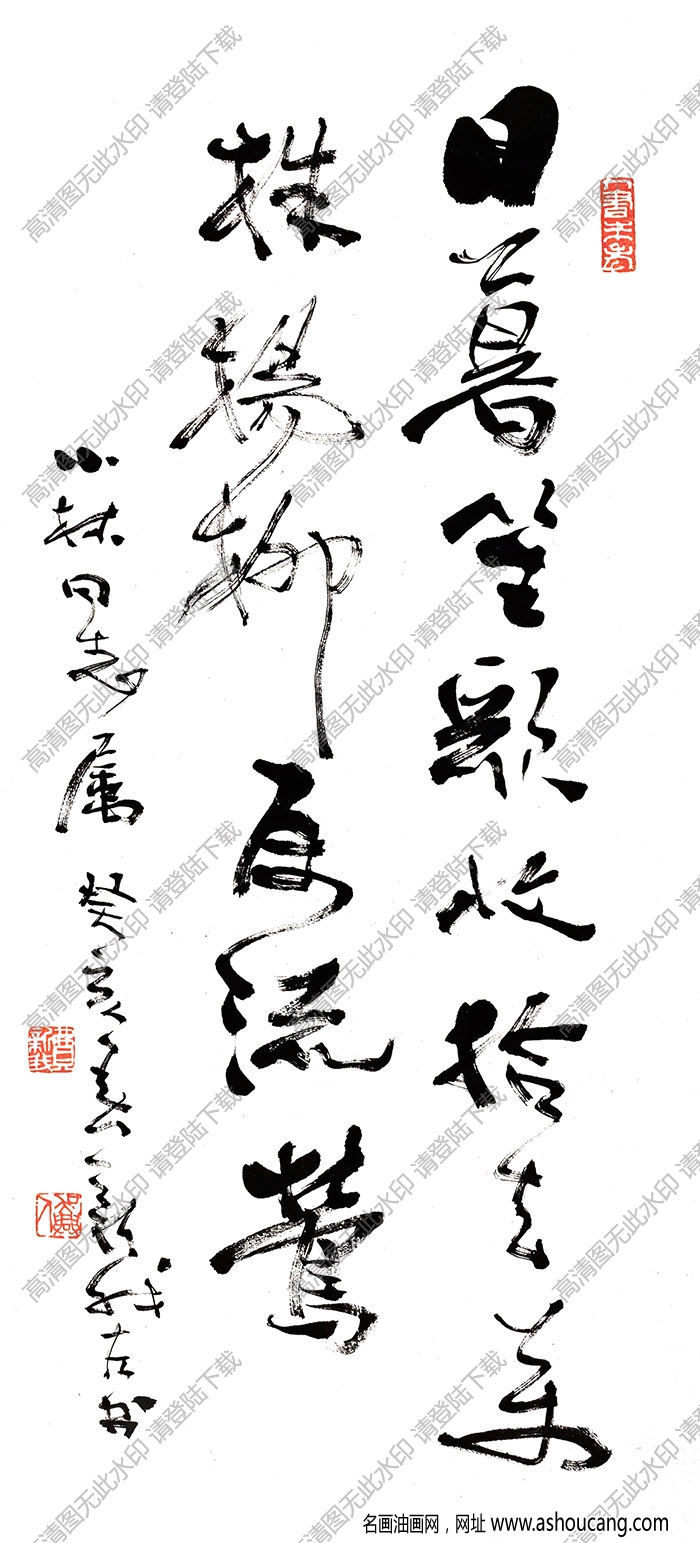 日暮笙歌收拾去萬
株楊柳属流鶯
同志属
癸亥春新我左书
高清图无此水印 请登陆下载
名画油画网，网址 www.ashoucang.com